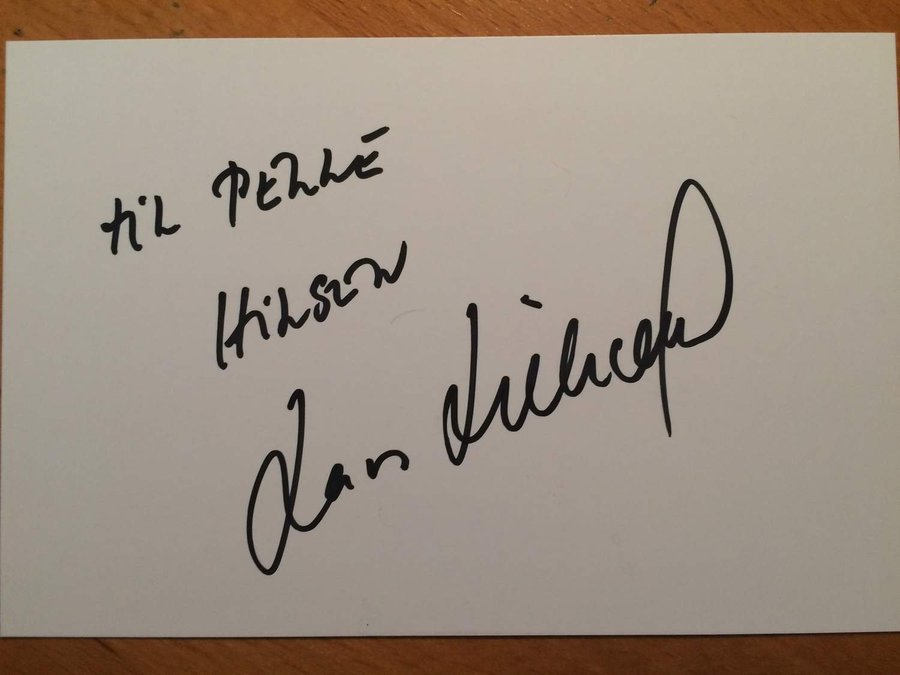 til PELLE
HILSEN
Lars